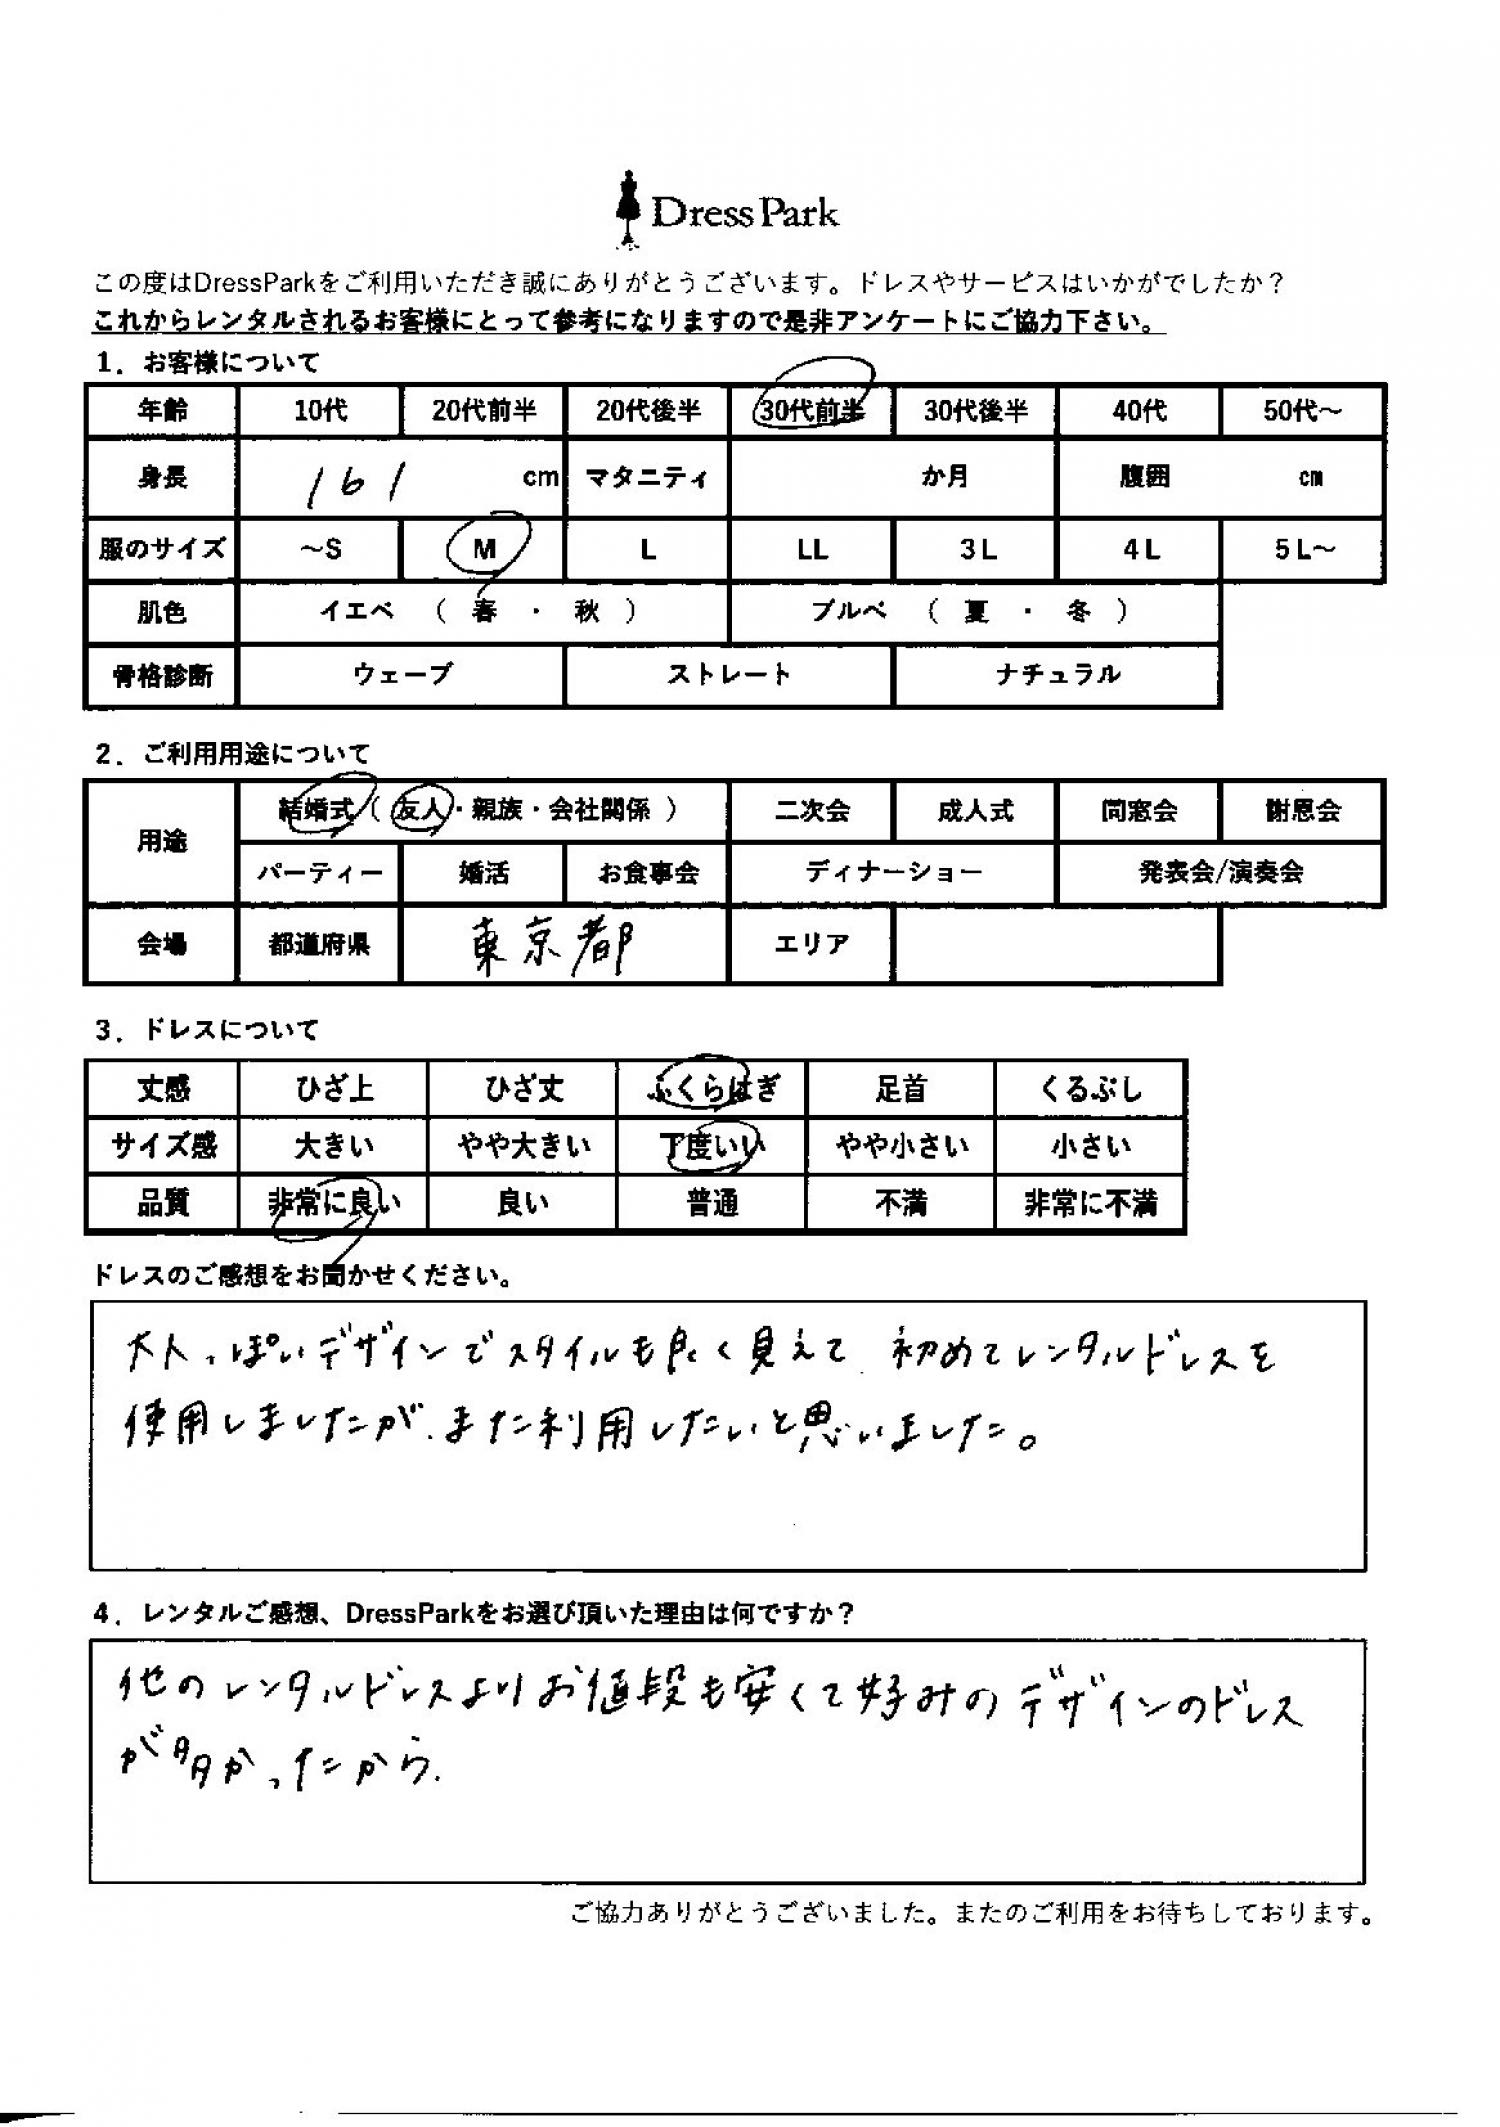 DressPark
この度はDressParkをご利用いただき誠にありがとうございます。ドレスやサービスはいかがでしたか？
これからレンタルされるお客様にとって参考になりますので是非アンケートにご協力下さい。
1．お客様について
年齢 10代 20代前半 20代後半 30代前半 30代後半 40代 50代～
身長 161 cm マタニティ か月 腹囲 cm
服のサイズ ～S M L LL 3L 4L 5L～
肌色 イエベ （ 春 ・ 秋 ） ブルベ （ 夏 ・ 冬 ）
骨格診断 ウェーブ ストレート ナチュラル
2．ご利用用途について
用途 結婚式（ 友人・親族・会社関係 ） 二次会 成人式 同窓会 謝恩会
パーティー 婚活 お食事会 ディナーショー 発表会/演奏会
会場 都道府県 東京都 エリア
3．ドレスについて
丈感 ひざ上 ひざ丈 ふくらはぎ 足首 くるぶし
サイズ感 大きい やや大きい 丁度いい やや小さい 小さい
品質 非常に良い 良い 普通 不満 非常に不満
ドレスのご感想をお聞かせください。
大人っぽいデザインでスタイルも良く見えて 初めてレンタルドレスを
使用しましたが、また利用したいと思いました。
4．レンタルご感想、DressParkをお選び頂いた理由は何ですか？
他のレンタルドレスよりお値段も安くて好みのデザインのドレス
が多かったから.
ご協力ありがとうございました。またのご利用をお待ちしております。